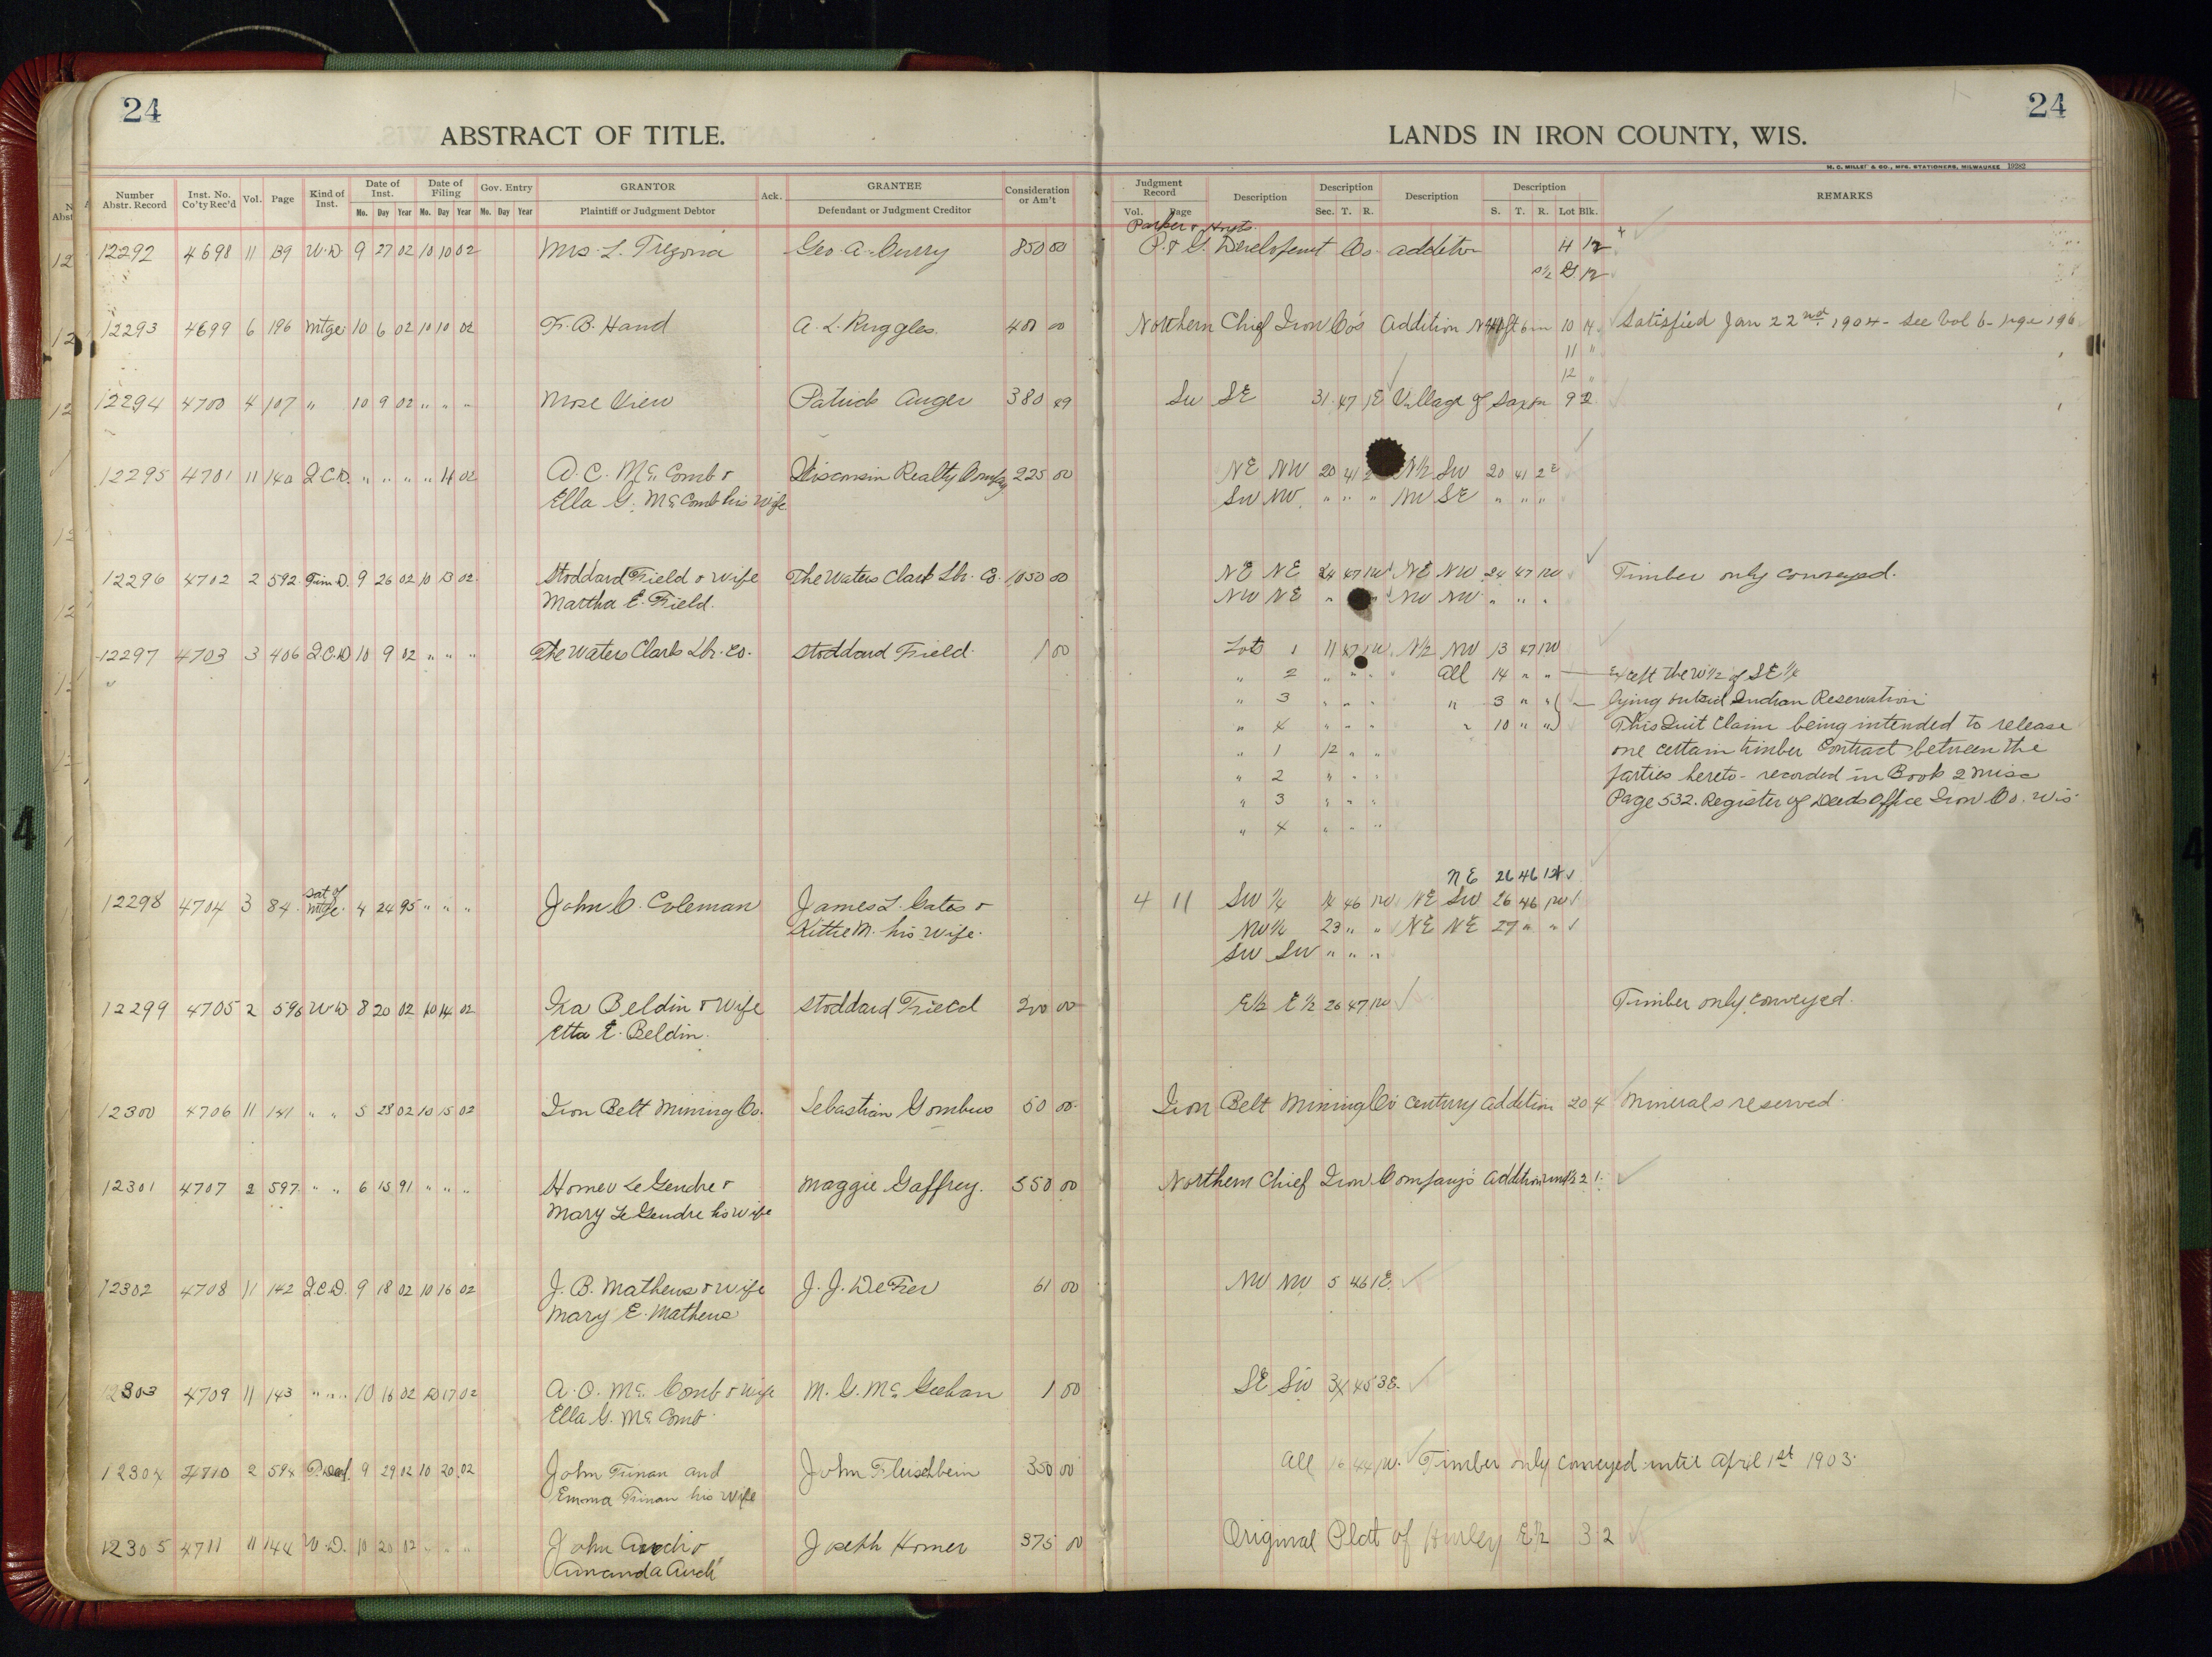 24
ABSTRACT OF TITLE.
LANDS IN IRON COUNTY, WIS.
24
H. C. MILLER & CO., MFG. STATIONERS, MILWAUKEE 19282
Number Abstr. Record Inst. No. Co'ty Rec'd Vol. Page Kind of Inst. Date of Inst. Date of Filing Gov. Entry GRANTOR Ack. GRANTEE Consideration or Am't Judgment Record Description Description Description Description REMARKS
Mo. Day Year Mo. Day Year Mo. Day Year Plaintiff or Judgment Debtor Defendant or Judgment Creditor Vol. Page Sec. T. R. S. T. R. Lot Blk.
Parker & Hoyts
12292 4698 11 139 W.D. 9 27 02 10 10 02 Mrs. L. Tregona Geo. A. Curry 850 00 P. & G. Development Co. addition 4 12
S½ G 12
12293 4699 6 196 Mtge 10 6 02 10 10 02 F. B. Hand A. L. Ruggles. 400 00 Northern Chief Iron Co's Addition 10 14 Satisfied Jan 22nd 1904 - See Vol 6 - Page 196
11 "
12 "
12294 4700 4 107 " 10 9 02 " " " Mose View Patrick Auger 380 49 SW SE 31 47 1E Village of Saxon 9 2
12295 4701 11 140 Q.C.D. " " " " 11 02 A. C. McComb & Wisconsin Realty Company 225 00 NE NW 20 41 2 N½ SW 20 41 2E
Ella G. McComb his wife SW NW " " " NW SE " " "
12296 4702 2 592 Tim D. 9 26 02 10 13 02 Stoddard Field & wife The Waters Clark Lbr. Co. 1050 00 NE NE 24 47 1W NE NW 24 47 1W Timber only conveyed.
Martha E. Field. NW NE " " NW NW " " "
12297 4703 3 406 Q.C.D 10 9 02 " " " The Waters Clark Lbr. Co. Stoddard Field 1 00 Lots 1 11 47 1W N½ NW 13 47 1W
" 2 " " " all 14 " " Except the W½ of SE¼
" 3 " " " " 3 " " lying outsid Indian Reservation
" 4 " " " " 10 " " This Quit Claim being intended to release
" 1 12 " " one certain timber Contract between the
" 2 " " " parties hereto - recorded in Book 2 Misc
" 3 " " " Page 532. Register of Deeds Office Iron Co. Wis
" 4 " " "
NE 26 46 1W
12298 4704 3 84 Sat of Mtge. 4 24 95 " " " John C. Coleman James L. Gates & 4 11 SW¼ 14 46 1W NE SW 26 46 1W
Kittie M. his wife. NW¼ 23 " " NE NE 27 " "
SW SW " " "
12299 4705 2 596 W.D 8 20 02 10 14 02 Ira Beldin & wife Stoddard Field 200 00 E½ E½ 26 47 1W Timber only conveyed.
Etta E. Beldin.
12300 4706 11 141 " " 5 28 02 10 15 02 Iron Belt Mining Co. Sebastian Gombus 50 00 Iron Belt Mining Co Century Addition 20 4 Minerals reserved
12301 4707 2 597 " " 6 15 91 " " " Homer Le Gendre & Maggie Gaffrey. 550 00 Northern Chief Iron Company's Addition und½ 2 1
Mary Le Gendre his wife
12302 4708 11 142 Q.C.D. 9 18 02 10 16 02 J. B. Mathews & wife J. J. DeFer 61 00 NW NW 5 46 1E.
Mary E. Mathews
12303 4709 11 143 " " " 10 16 02 10 17 02 A. O. McComb & wife M. G. McGeehan 1 00 SE SW 34 45 3E.
Ella G. McComb
12304 4710 2 594 Deed 9 29 02 10 20 02 John Finan and John Fleischbein 350 00 All 16 44 1W. Timber only conveyed until April 1st 1903.
Emma Finan his wife
12305 4711 11 144 W.D. 10 20 02 " " " John Auch & Joseph Homer 375 00 Original Plat of Hurley E½ 3 2
Amanda Auch